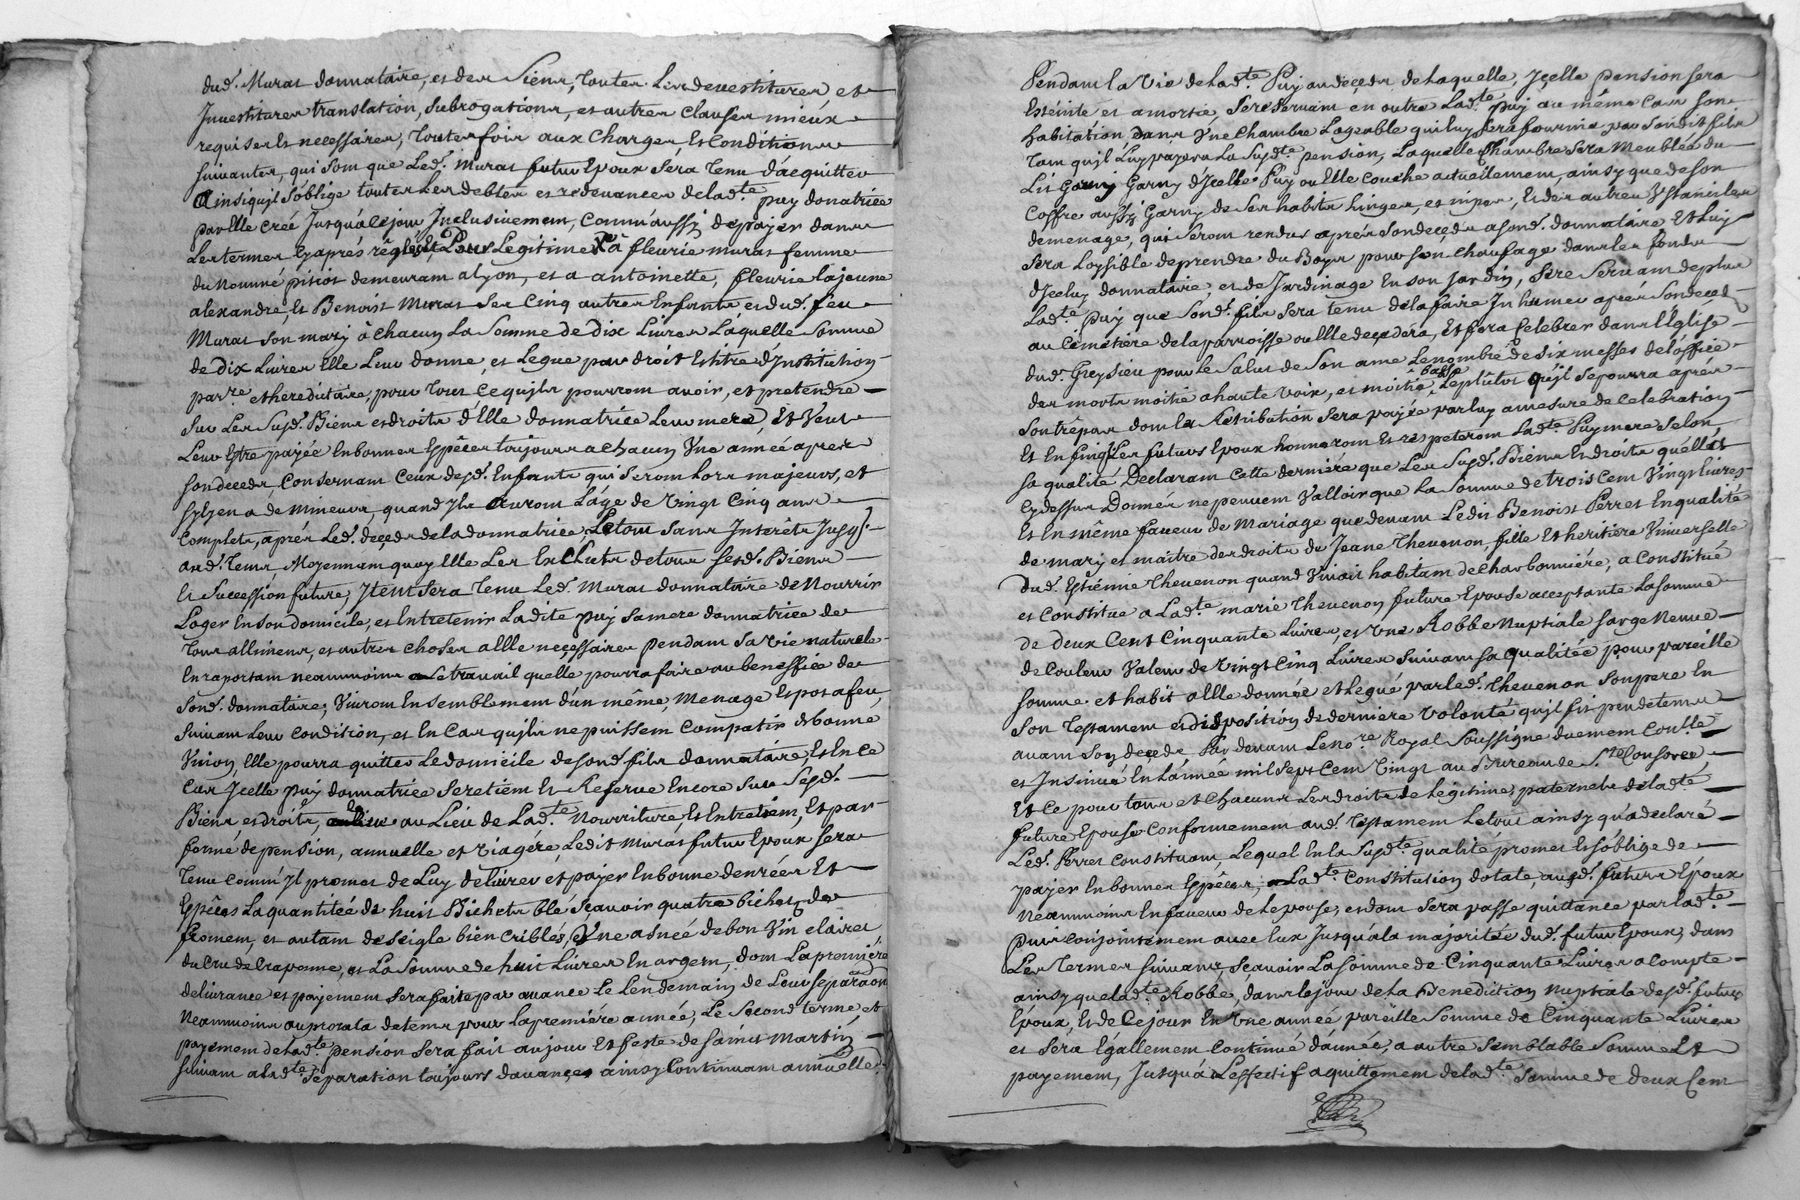 dud. Muras donnataire, es des Siens, toutes Les devestitures, et
Investitures translation, subrogations, es autres clauses mieux
requises Es necessaires, toutes fois aux charges, Es Conditions
suivantes, qui som que Led. Muras futur Epoux sera tenu d'acquitter
Ainsi quil s'oblige toutes Les debtes es redevances de lad.te puy donatrice
par elle créé Jusqu'a ce jour Inclusivement, Comm'aussy de payer dans
Les termes Cy aprés réglés, Es Pour Legitimes à fleurie muras femme
du Nommé pitiot demeuram a Lyon, es a antoinette, fleurie la jeune
alexandre, Es Benoist Muras ses Cinq autres Enfants es dud. feu
Muras son mary à chacun La Somme de dix Livres Laquelle Somme
de dix Livres Elle Leur donne, es Legue par droit Es titre d'Institution
par.re et hereditaire, pour tous ce quils pourrom avoir, et pretendre
sur Les susd. Biens es droits d'Elle donnatrice Leur mere, Et Veut
Leur Estre payée En bonnes Especes toujours a chacun Une année apres
son deceds, Concernam Ceux desd. Enfants qui serom Lors majeurs, et
s'yl y en a de Mineurs, quand Yls aurom L'age de Vingt Cinq ans
Complets, aprés Led. deceds de la donnatrice, Le tout sans Interêts Jusq
aud. tems Moyennam quoy Elle Les Exclut de tous sesd. Biens
Es Succession future, Item sera tenu Led. Muras donnataire de Nourrir
Loger En son domicile, es Entretenir Ladite puy sa mere donnatrice de
tous allimens, es autres choses a Elle necessaires pendam sa vie naturele
En raportam neammoins Le travail quelle pourra faire au beneffice de
sond. donnataire; Vivrom Ensemblement d'un même, Menage Es pot a feu,
suivam Leur Condition, es En Cas quils ne puissem Compatir de bonne
Union, Elle pourra quitter Le domicile de sond. fils donnataire, Es En Ce
Cas Icelle Puy donnatrice se retiem Es Reserve Encore sur Sesd.
Biens es droits, au Lieu de Lad.te Nourriture, Es Entretiem, Es par
forme de pension, annuelle et viagére, Ledit Muras futur Epoux sera
tenu comm'Yl promet de Luy delivrer et payer En bonne denrées Et
Especes La quantitée de huit Bichets blé sçavoir quatre bichets de
froment, es autam de seigle bien criblés, Une asnée de bon Vin clairet
du Cru de Craponne, es La Somme de huit Livres En argent, dom La premiére
delivrance es payement sera faite par avance Le Lendemain de Leur séparaõn
Neammoins au prorata de tems pour La premiére année; Le second terme, et
payement de Lad.te pension sera fait au jour Et feste de Saint Martin
suivam a Lad.te separation toujours d'avance, ainsy Continuam annuelle
Pendam la Vie de Lad.te Puy au deceds de Laquelle, Icelle pension sera
Esteinte es amortie, Se reservam en outre Lad.te Puy au même Cas son
habitation dans Une Chambre Logeable qui luy sera fournie par sondit fils
tam quil Luy payera La susd.te pension, Laquelle Chambre sera Meublée du
Lit Garny d'Icelle Puy ou Elle couche actuellement, ainsy que de son
Coffre aussy Garny de ses habits Linges, es nipes, Es des autres Ustanciles
de menage, qui serom rendus aprés son deceds a sond. donnataire Et Luy
sera Loysible de prendre du Boys pour son chaufage dans les fonds
d'Iceluy donnataire, es de Jardinage En son Jardin, Se reservam de plus
Lad.te Puy que sond. fils sera tenu de la faire Inhumer aprés son deced
au Cimetiére de la parroisse ou Elle decedera, Es fera Celebrer dans L'Eglise
dud. Greysieu pour le Salut de Son ame Le nombre de dix messes de l'office
des morts moitié a haute voix, es moitié basse Le plûtot qu'il se pourra apres
son trépas dom la Retribution sera payée par luy a mesure de Celebration
Es En fin Les futurs Epoux honnorerom Es respeterom Lad.te Puy mere selon
sa qualité Declaram Cette derniére que Les susd. Biens Es droits quelle a
Cy dessus Donnés ne peuvem Valloir que La Somme de trois Cem Vingt Livres
Es En même faveur de Mariage que devam Ledit Benoist Perret En qualité
de mary es maitre des droits de Jeane Thevenon, fille Es heritiére Universelle
Dud. Estienne Thevenon quand Vivoit habitam de Charbonniére, a Constitué
es Constitue a Lad.te marie Thevenon future Epouse acceptante La Somme
de deux Cent Cinquante Livres, es Une Robbe Nuptiale sarge Neuve
de Couleur Valeur de Vingt Cinq Livres Suivam sa qualitée, pour pareille
somme et habit a Elle donnée et Legué par Led. Thevenon Son pere En
son Testament es disposition de derniere Volonté quil fit peu de tems
avam Son deceds Par devam Le no.re Royal Soussigné duement Con.llé
es Insinué En L'année mil Sept Cem Vingt au Bureau de St. Consorce,
Et Ce pour tous et Chacuns Les droits de Legitimes paternels de Lad.te
future Epouse Conformement aud. testament Le tout ainsy qu'a declaré
Led. Perret Constituam, Lequel En la Susd.te qualité promet Es s'oblige de
payer En bonnes Especes, Lad.te Constitution dotale, ausd. futurs Epoux
Neammoins En faveur de L'epouse; es dom sera passé quittance par Lad.te
Puis conjointement avec Eux Jusqu'a la majoritée dud. futur Epoux, dans
Les termes suivans, Sçavoir La somme de Cinquante Livres a Compte
ainsy que lad.te Robbe, dans le jour de La Benediction Nuptiale desd. futurs
Epoux, Es de Ce jour En Une année pareille Somme de Cinquante Livres
es sera Egallement Continué d'année, a autre semblable Somme Es
payement, Jusqu'a L'effectif aquittement de lad.te Somme de deux Cem